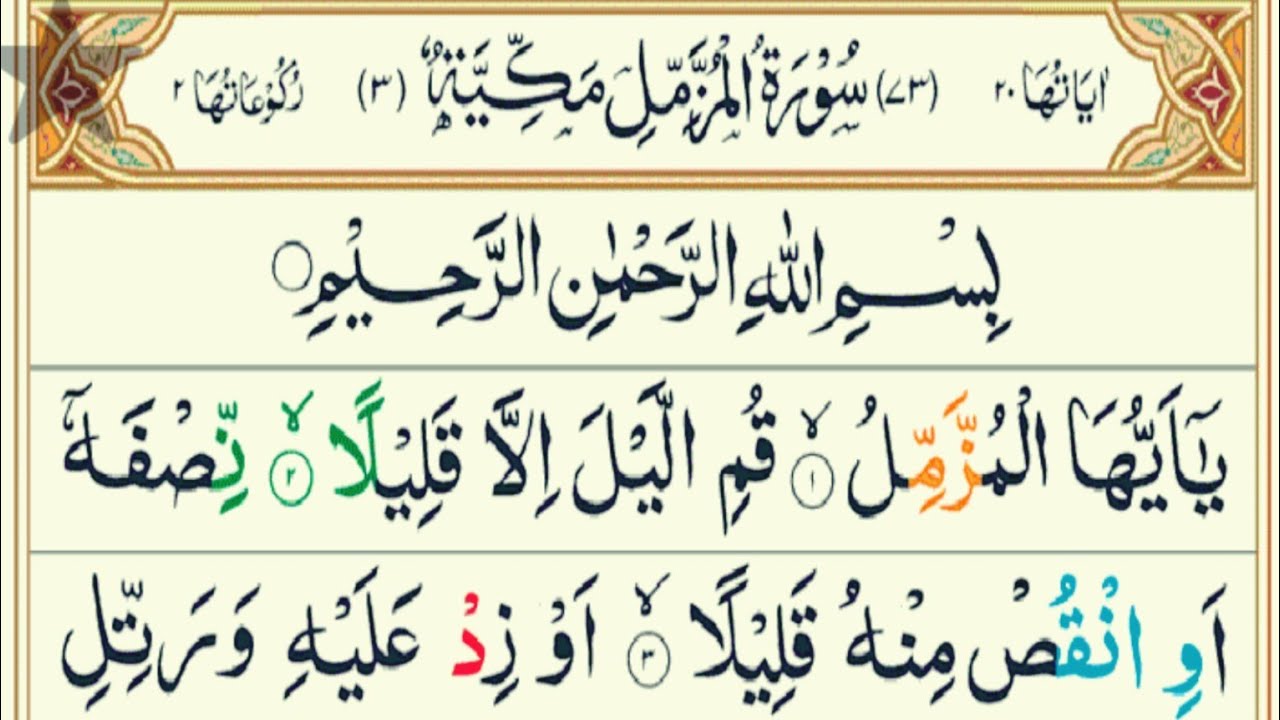 اٰيَاتُهَا ٢٠ (٧٣) سُوْرَةُ الْمُزَّمِّلِ مَكِّيَّةٌ (٣) رُكُوْعَاتُهَا ٢
بِسْمِ اللّٰهِ الرَّحْمٰنِ الرَّحِيْمِ
يٰۤاَيُّهَا الْمُزَّمِّلُ ۙ﴿١﴾ قُمِ الَّيْلَ اِلَّا قَلِيْلًا ۙ﴿٢﴾ نِّصْفَهٗۤ
اَوِ انْقُصْ مِنْهُ قَلِيْلًا ۙ﴿٣﴾ اَوْ زِدْ عَلَيْهِ وَرَتِّلِ